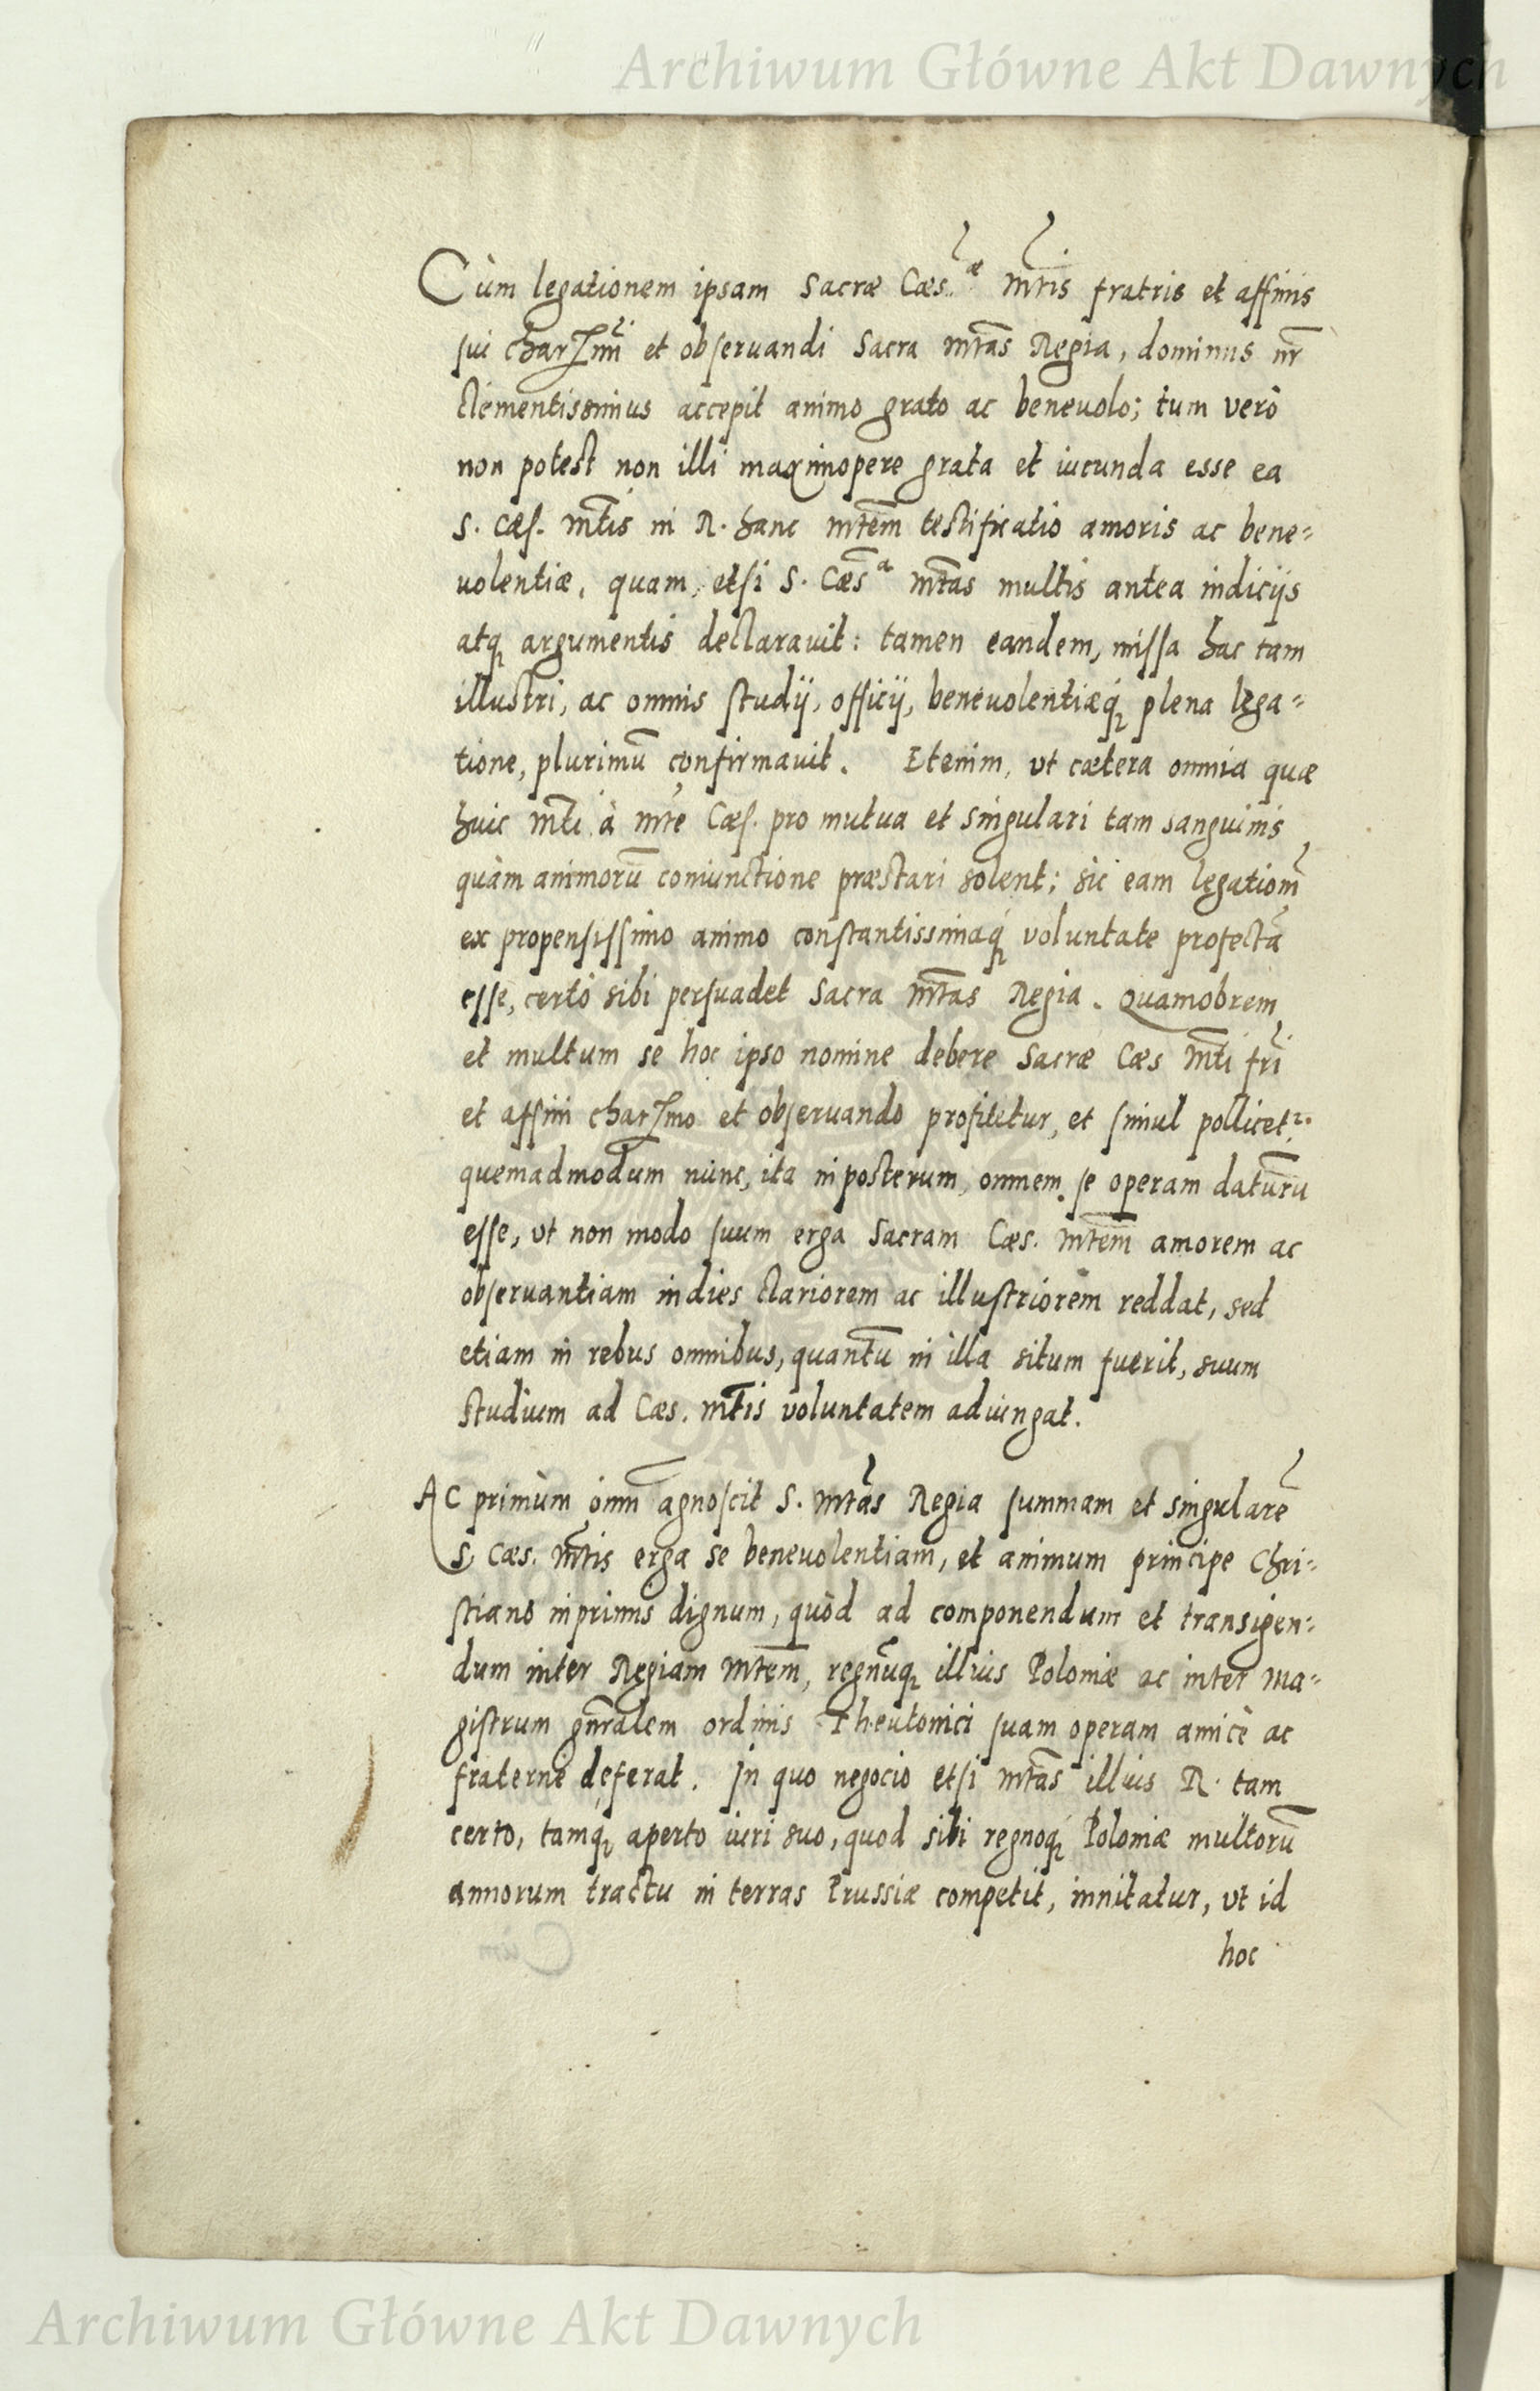 Archiwum Główne Akt Dawnych
Cùm legationem ipsam Sacræ Cæs.æ Mtis fratris et affinis
sui charissmi et obseruandi Sacra Mtas Regia, dominus nr
clementissimus accepit animo grato ac beneuolo; tum verò
non potest non illi maximopere grata et iucunda esse ea
S. Cæs. Mtis in R. hanc Mtem testificatio amoris ac bene=
uolentiæ, quam, etsi S. Cæs.a Mtas multis antea indicijs
atq argumentis declarauit: tamen eandem, missa hac tam
illustri, ac omnis studij, officij, beneuolentiæq plena lega=
tione, plurimū confirmauit. Etenim, vt cætera omnia quæ
huic Mti à Mte Cæs. pro mutua et singulari tam sanguinis
quàm animorū coniunctione præstari solent; sic eam legationē
ex propensissimo animo constantissimaq voluntate profectā
esse, certò sibi persuadet Sacra Mtas Regia. Quamobrem
et multum se hoc ipso nomine debere Sacræ Cæs Mti fri
et affini charissmo et obseruando profitetur, et simul pollicetr.
quemadmodum nunc, ita in posterum, omnem se operam daturū
esse, vt non modo suum erga Sacram Cæs. Mtem amorem ac
obseruantiam indies clariorem ac illustriorem reddat, sed
etiam in rebus omnibus, quantū in illa situm fuerit, suum
studium ad Cæs. Mtis voluntatem adiungat.
AC primùm omn agnoscit S. Mtas Regia summam et singularē
S. Cæs. Mtis erga se beneuolentiam, et animum principe Chri=
stiano inprimis dignum, quòd ad componendum et transigen=
dum inter Regiam Mtem, regnūq illius Poloniæ ac inter Ma=
gistrum gnralem ordinis Theutonici suam operam amicè ac
fraternè deferat. In quo negocio etsi Mtas illius R. tam
certo, tamq aperto iuri suo, quod sibi regnoq Poloniæ multorū
annorum tractu in terras Prussiæ competit, innitatur, vt id
hoc
Archiwum Główne Akt Dawnych